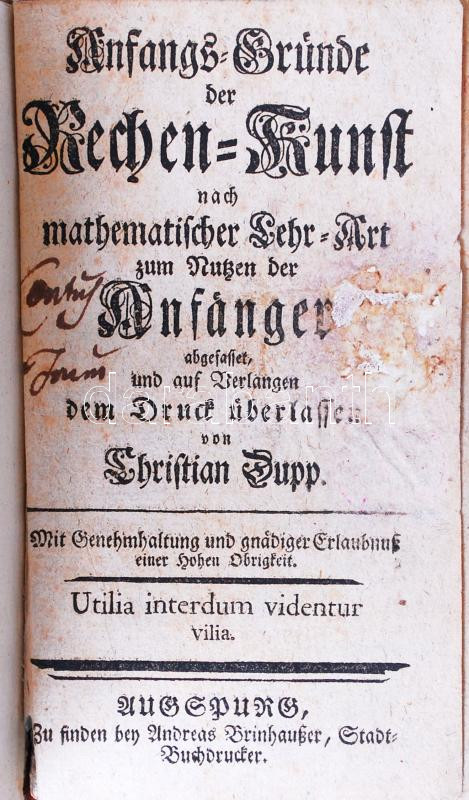 Anfangs-Gründe
der
Rechen-Kunst
nach
mathematischer Lehr-Art
zum Nutzen der
Anfänger
abgefasset,
und auf Verlangen
dem Druck überlassen
von
Christian Dupp.
Mit Genehmhaltung und gnädiger Erlaubnuß
einer Hohen Obrigkeit.
Utilia interdum videntur
vilia.
AUGSPURG,
Zu finden bey Andreas Brinhaußer, Stadt-
Buchdrucker.